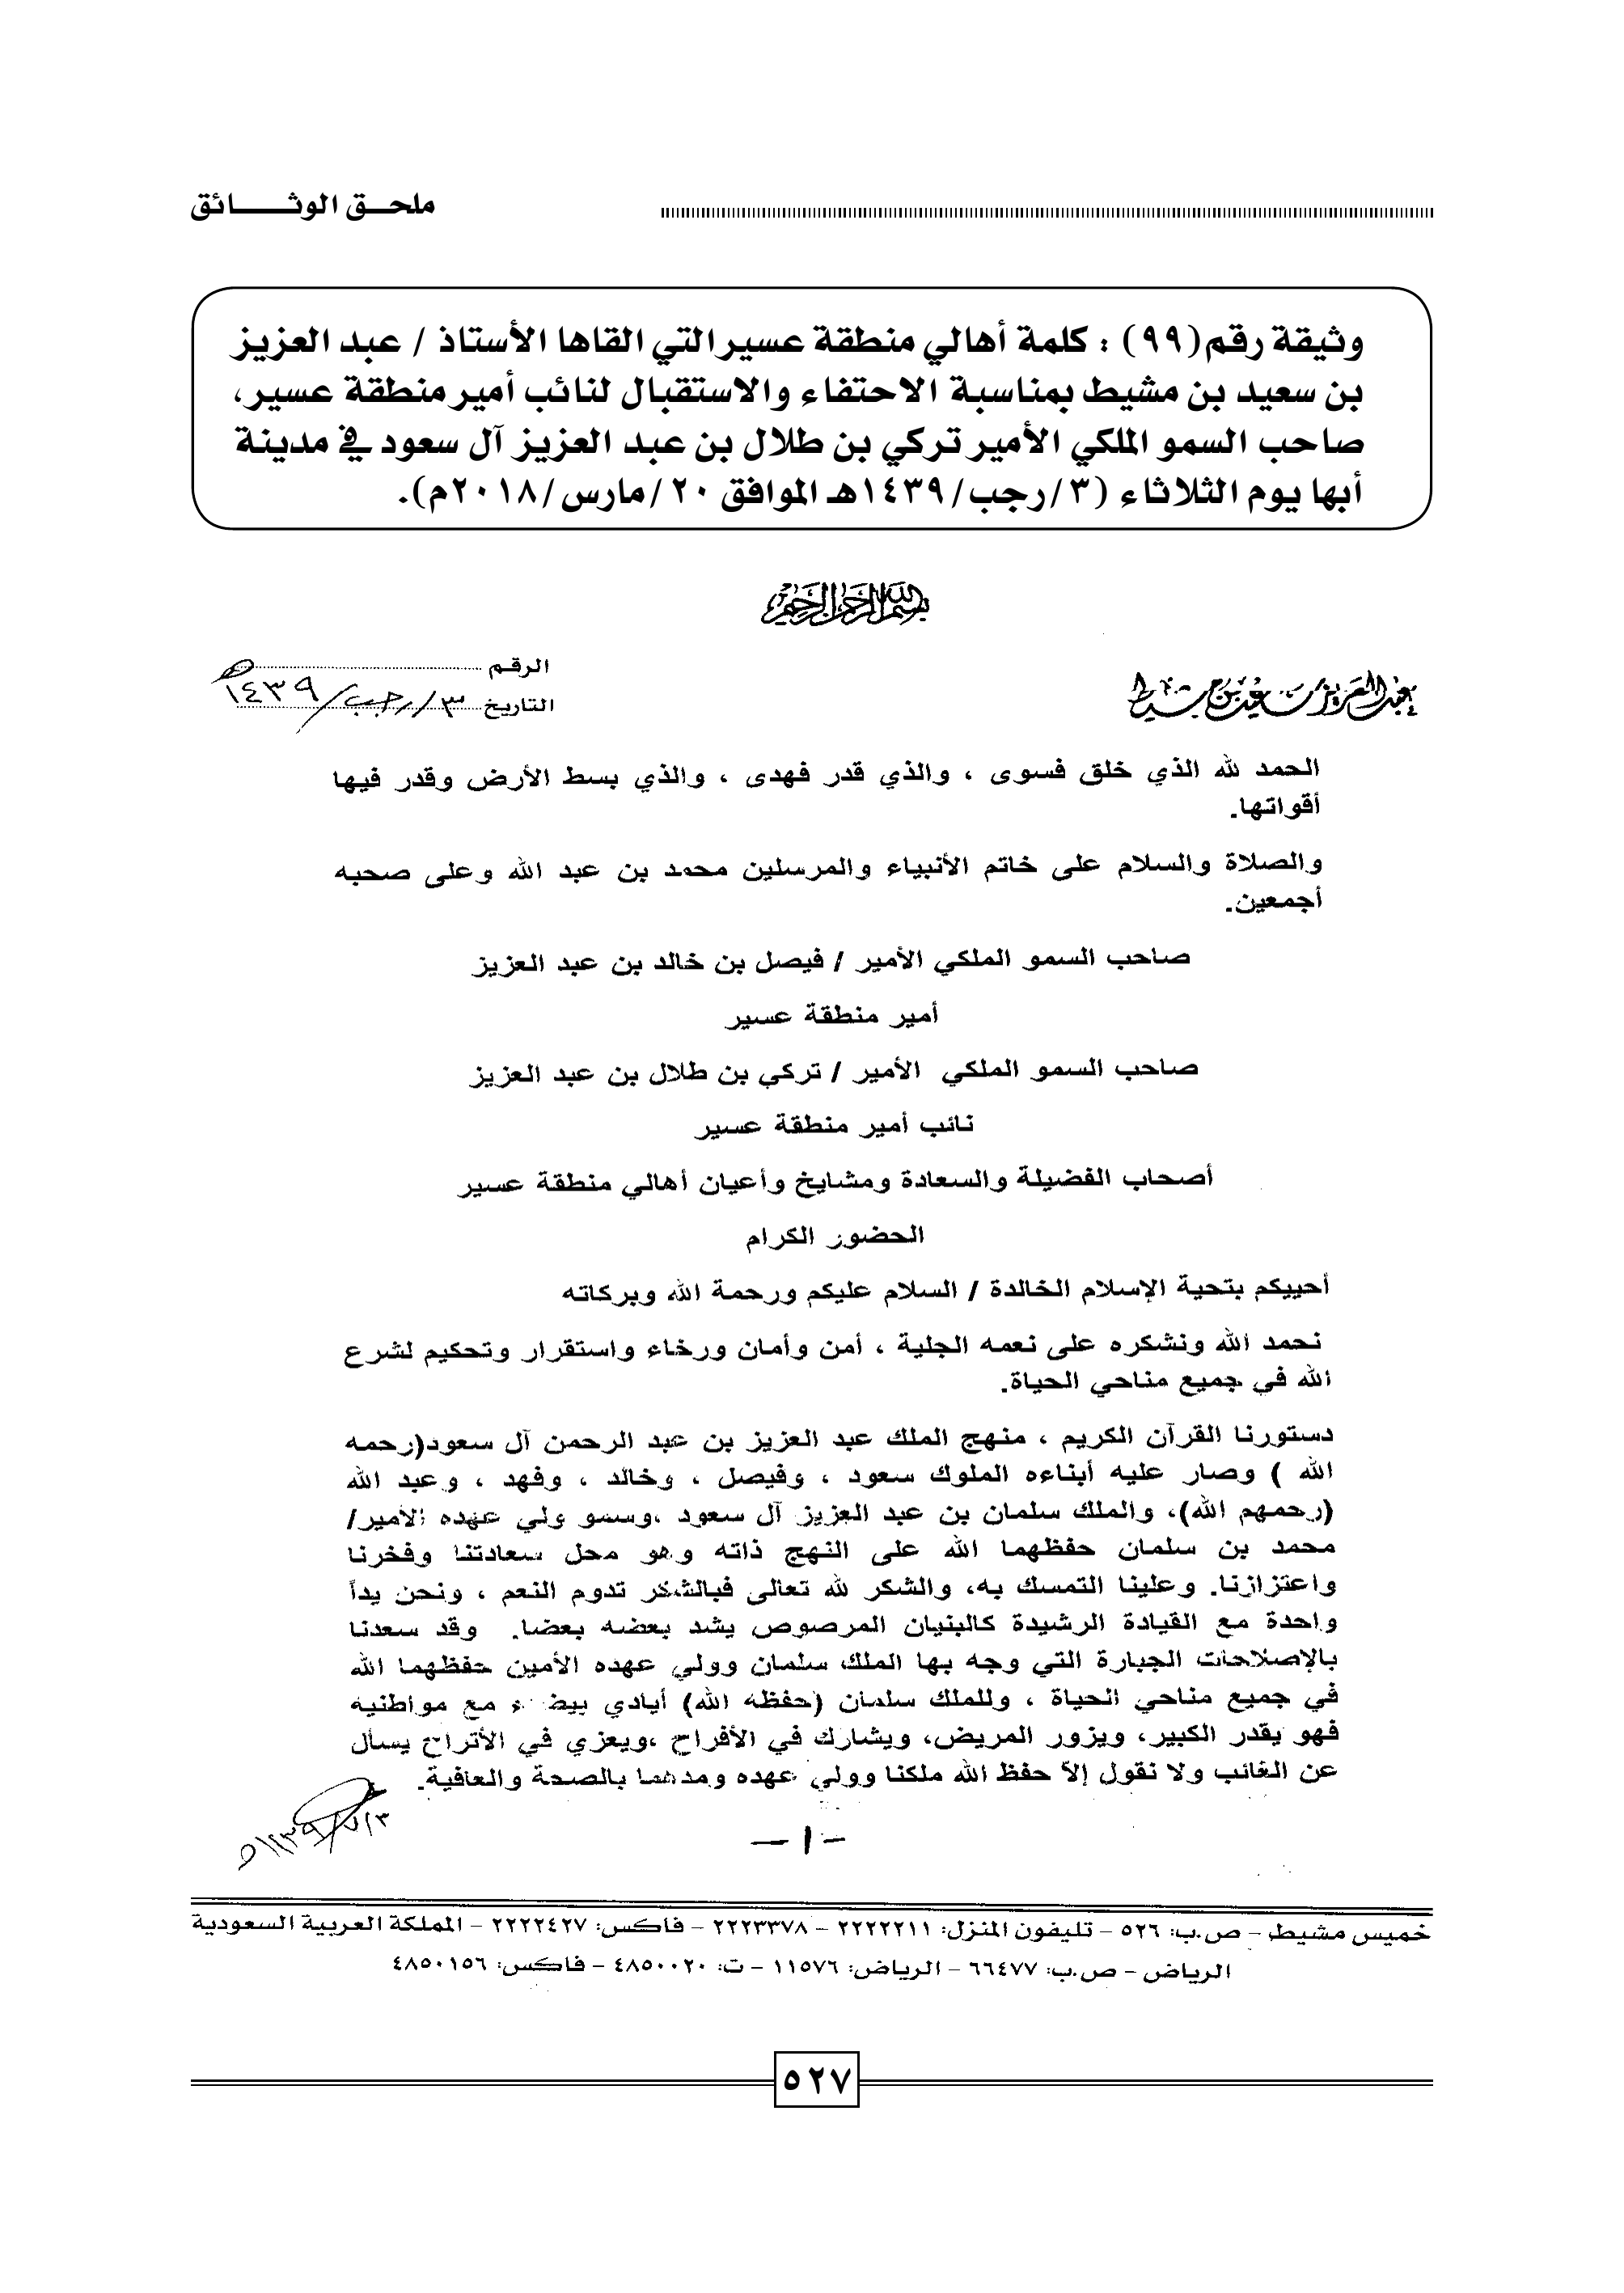 ملحـــق الوثـــــــائق
وثيقة رقم (٩٩) : كلمة أهالي منطقة عسير التي القاها الأستاذ / عبد العزيز
بن سعيد بن مشيط بمناسبة الاحتفاء والاستقبال لنائب أمير منطقة عسير،
صاحب السمو الملكي الأمير تركي بن طلال بن عبد العزيز آل سعود في مدينة
أبها يوم الثلاثاء (٣/رجب/١٤٣٩هـ الموافق ٢٠/مارس/٢٠١٨م).
بسم الله الرحمن الرحيم
الرقم
عبد العزيز سعيد بن مشيط
التاريخ ٣/رجب/١٤٣٩هـ
الحمد لله الذي خلق فسوى ، والذي قدر فهدى ، والذي بسط الأرض وقدر فيها
أقواتها.
والصلاة والسلام على خاتم الأنبياء والمرسلين محمد بن عبد الله وعلى صحبه
أجمعين.
صاحب السمو الملكي الأمير / فيصل بن خالد بن عبد العزيز
أمير منطقة عسير
صاحب السمو الملكي الأمير / تركي بن طلال بن عبد العزيز
نائب أمير منطقة عسير
أصحاب الفضيلة والسعادة ومشايخ وأعيان أهالي منطقة عسير
الحضور الكرام
أحييكم بتحية الإسلام الخالدة / السلام عليكم ورحمة الله وبركاته
نحمد الله ونشكره على نعمه الجلية ، أمن وأمان ورخاء واستقرار وتحكيم لشرع
الله في جميع مناحي الحياة.
دستورنا القرآن الكريم ، منهج الملك عبد العزيز بن عبد الرحمن آل سعود(رحمه
الله ) وصار عليه أبناءه الملوك سعود ، وفيصل ، وخالد ، وفهد ، وعبد الله
(رحمهم الله)، والملك سلمان بن عبد العزيز آل سعود ،وسمو ولي عهده الأمير/
محمد بن سلمان حفظهما الله على النهج ذاته وهو محل سعادتنا وفخرنا
واعتزازنا. وعلينا التمسك به، والشكر لله تعالى فبالشكر تدوم النعم ، ونحن يداً
واحدة مع القيادة الرشيدة كالبنيان المرصوص يشد بعضه بعضا. وقد سعدنا
بالإصلاحات الجبارة التي وجه بها الملك سلمان وولي عهده الأمين حفظهما الله
في جميع مناحي الحياة ، وللملك سلمان (حفظه الله) أيادي بيضاء مع مواطنيه
فهو يقدر الكبير، ويزور المريض، ويشارك في الأفراح ،ويعزي في الأتراح يسأل
عن الغائب ولا نقول إلاّ حفظ الله ملكنا وولي عهده ومدهما بالصحة والعافية.
– ١ –
خميس مشيط – ص.ب: ٥٢٦ – تليفون المنزل: ٢٢٢٢٢١١ – ٢٢٢٣٣٧٨ – فاكس: ٢٢٢٢٤٢٧ – المملكة العربية السعودية
الرياض – ص.ب: ٦٦٤٧٧ – الرياض: ١١٥٧٦ – ت: ٤٨٥٠٠٢٠ – فاكس: ٤٨٥٠١٥٦
٥٢٧